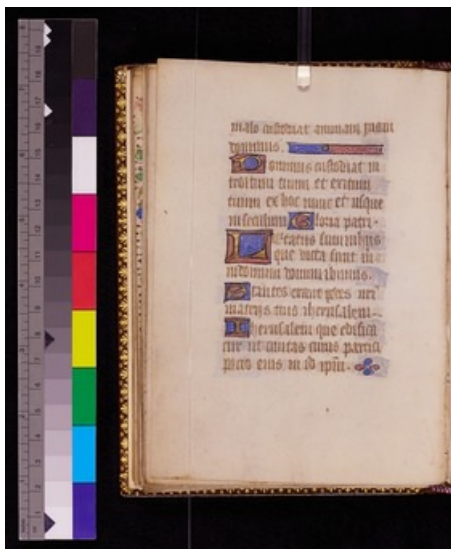 malo custodiat animam tuam
dominus.
Dominus custodiat in
troitum tuum et exitum
tuum ex hoc nunc et usque
in seculum Gloria patri.
Letatus sum in hijs
que dicta sunt m
in domum domini ibimus.
Stantes erant pedes nri
in atrijs tuis iherusalem.
Iherusalem que edifica
tur ut civitas cuius partici
pacio eius in id ipm.